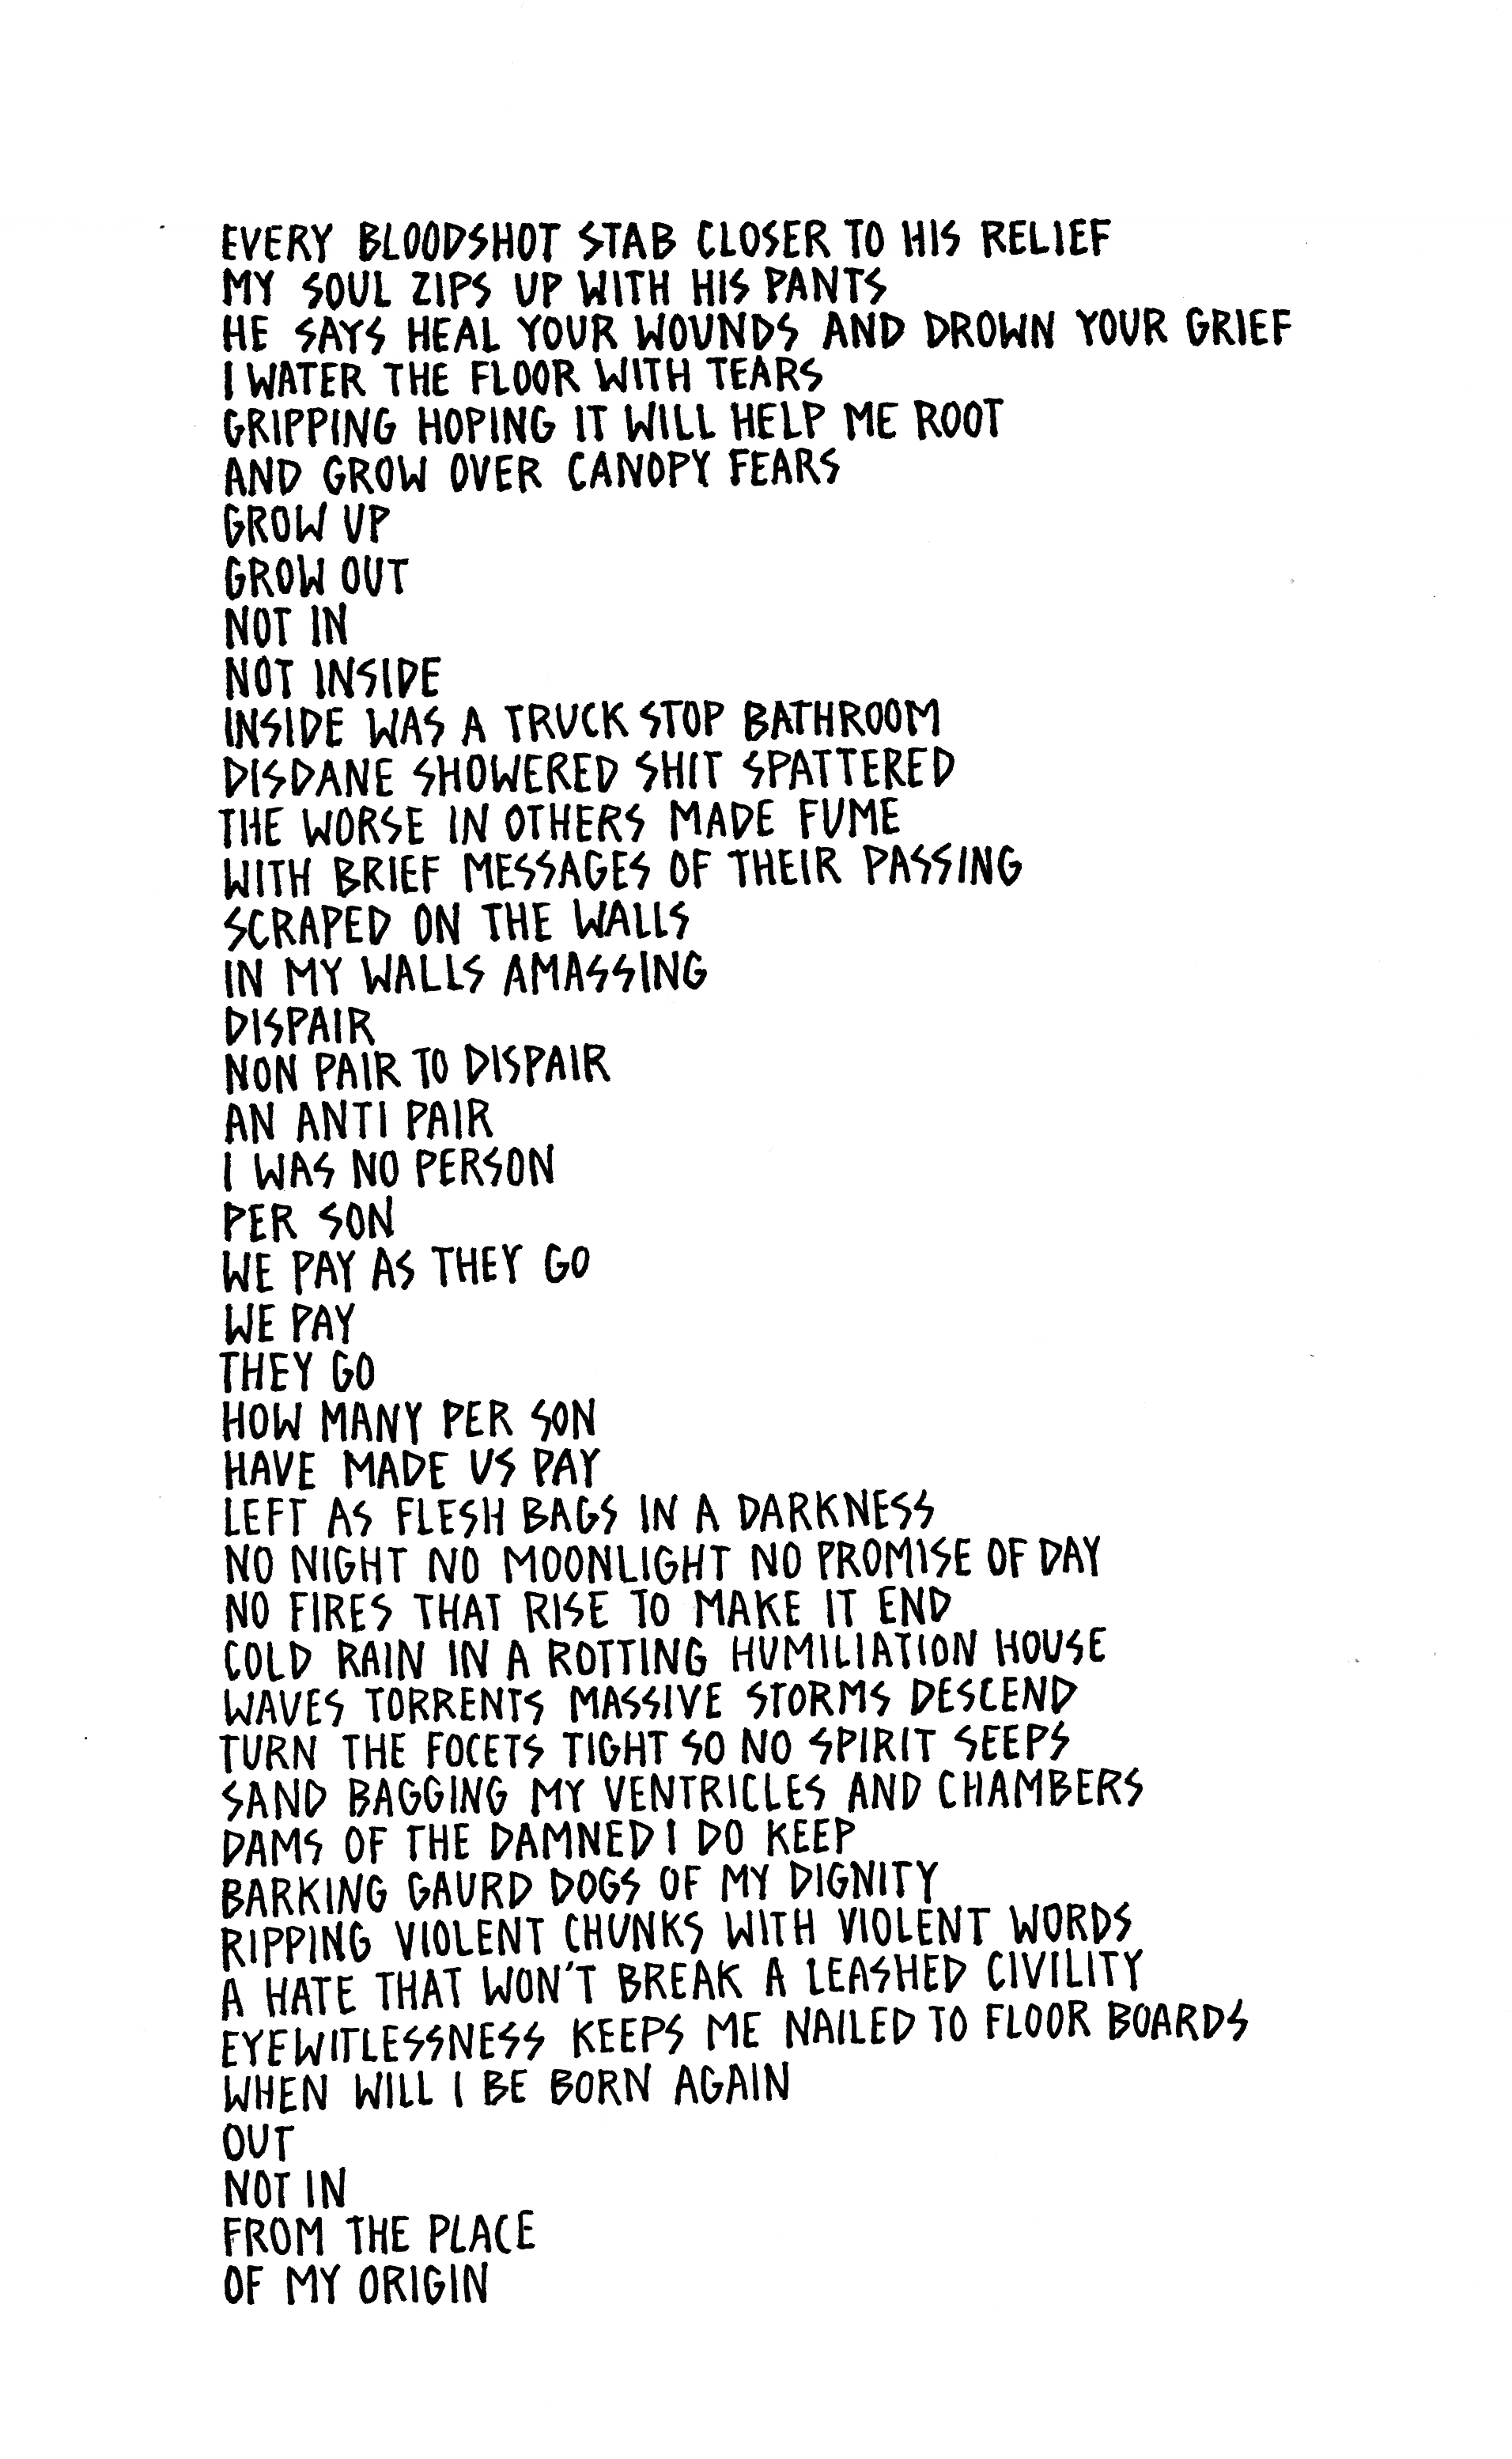 EVERY BLOODSHOT STAB CLOSER TO HIS RELIEF
MY SOUL ZIPS UP WITH HIS PANTS
HE SAYS HEAL YOUR WOUNDS AND DROWN YOUR GRIEF
I WATER THE FLOOR WITH TEARS
GRIPPING HOPING IT WILL HELP ME ROOT
AND GROW OVER CANOPY FEARS
GROW UP
GROW OUT
NOT IN
NOT INSIDE
INSIDE WAS A TRUCK STOP BATHROOM
DISDANE SHOWERED SHIT SPATTERED
THE WORSE IN OTHERS MADE FUME
WITH BRIEF MESSAGES OF THEIR PASSING
SCRAPED ON THE WALLS
IN MY WALLS AMASSING
DISPAIR
NON PAIR TO DISPAIR
AN ANTI PAIR
I WAS NO PERSON
PER SON
WE PAY AS THEY GO
WE PAY
THEY GO
HOW MANY PER SON
HAVE MADE US PAY
LEFT AS FLESH BAGS IN A DARKNESS
NO NIGHT NO MOONLIGHT NO PROMISE OF DAY
NO FIRES THAT RISE TO MAKE IT END
COLD RAIN IN A ROTTING HUMILIATION HOUSE
WAVES TORRENTS MASSIVE STORMS DESCEND
TURN THE FOCETS TIGHT SO NO SPIRIT SEEPS
SAND BAGGING MY VENTRICLES AND CHAMBERS
DAMS OF THE DAMNED I DO KEEP
BARKING GAURD DOGS OF MY DIGNITY
RIPPING VIOLENT CHUNKS WITH VIOLENT WORDS
A HATE THAT WON'T BREAK A LEASHED CIVILITY
EYEWITLESSNESS KEEPS ME NAILED TO FLOOR BOARDS
WHEN WILL I BE BORN AGAIN
OUT
NOT IN
FROM THE PLACE
OF MY ORIGIN